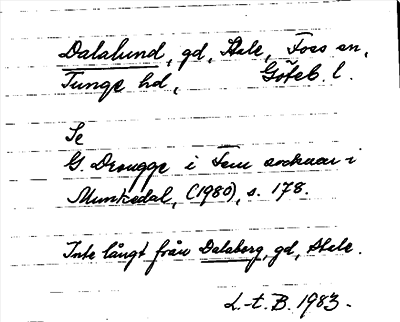 Dalalund, gd, Stale, Foss sn,
Tunge hd, Göteb. l.
Se
G. Drougge i Fem socknar i
Munkedal, (1980), s. 178.
Inte långt från Daleberg, gd, Stale.
L-t. B. 1983.